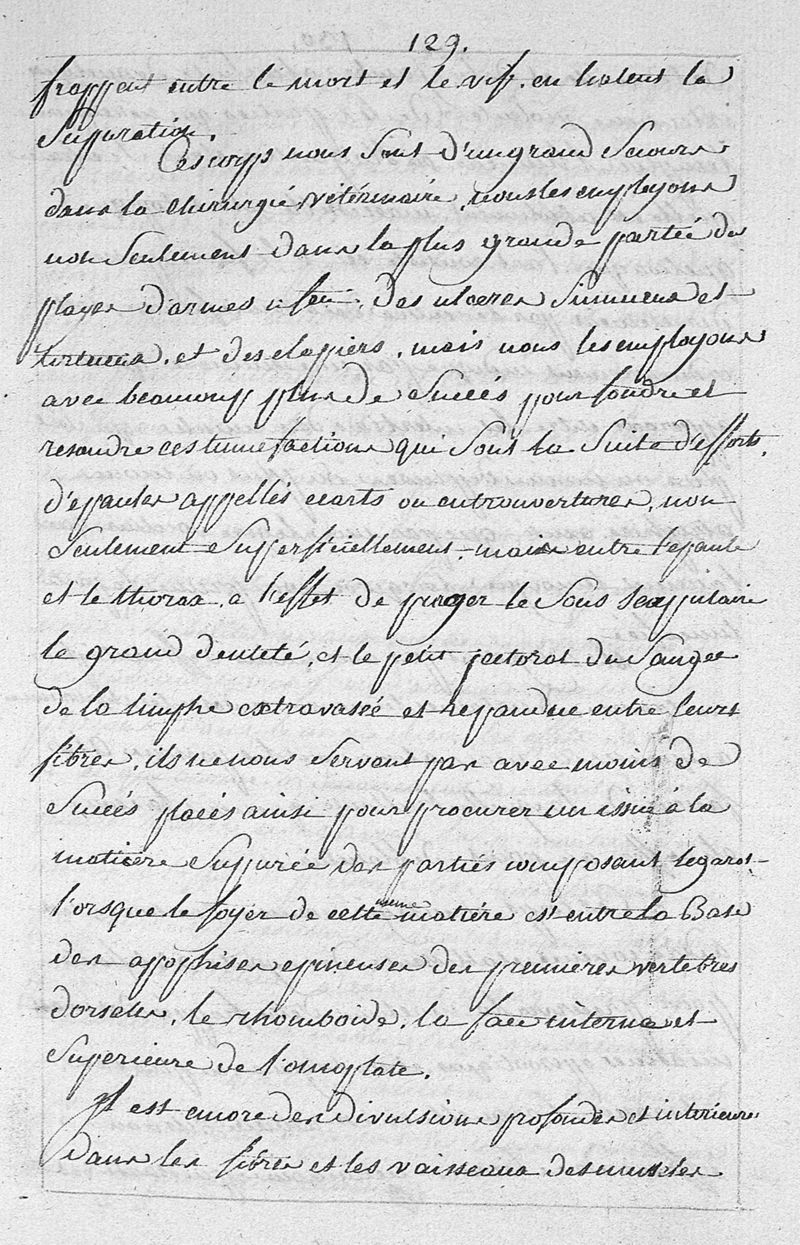 129.
frappent entre le mort et le vif. en hatent la
Supuration.
Ces corps nous Sont d'un grand Secours
dans la chirurgie vétérinaire, nous les employons
non Seulement dans la plus grande partié des
playes d'armes à feu, des ulceres Sinueux et
tortueux, et des clapiers, mais nous les employons
avec beaucoup plus de Succés pour fondre et
resoudre ces tumefactions qui Sont la Suite d'efforts,
d'epaules appellés ecarts ou entrouvertures, non
Seulement Superficiellement, mais entre l'epaule
et le thorax, a l'effet de purger le Sous Scapulaire
le grand dentelé, et le petit pectoral du Sang et
de la limphe extravasée et repandue entre leurs
fibres, ils ne nous Servent pas avec moins de
Succés placés ainsi pour procurer un issue à la
matiere Suppurée des parties composant le garot
lorsque le foyer de cette meme matiére est entre la Base
des apophises epineuses des premieres vertebres
dorsales, le rhomboide, la face interne et
Superieure de l'omoplate.
Il est encore des divulsions profondes et interieures
dans les fibres et les vaisseaux des muscles